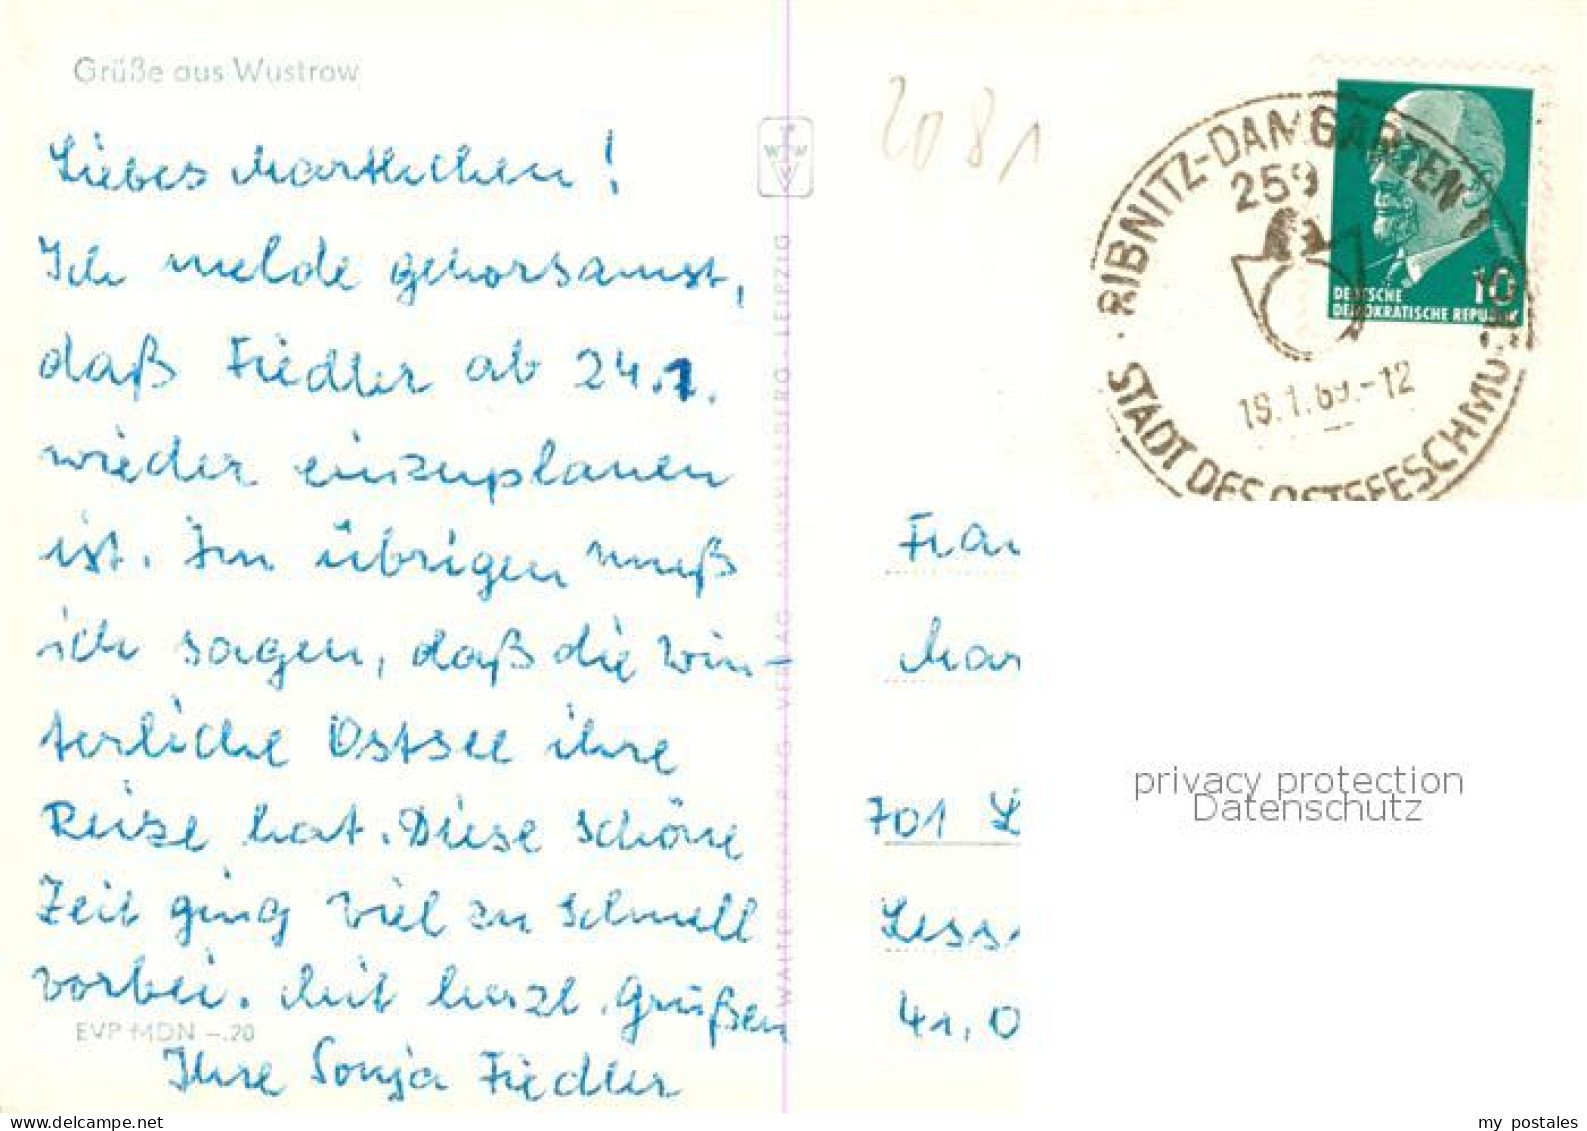 Grüße aus Wustrow
Liebes Marthchen!
Ich melde gehorsamst,
daß Fiedler ab 24.1.
wieder einzuplanen
ist. Im übrigen muß
ich sagen, daß die Win-
terliche Ostsee ihre
Reize hat. Diese schöne
Zeit ging viel zu schnell
vorbei. Mit herzl. Grüßen
EVP MDN -.20
Ihre Sonja Fiedler
WALTER WENG VERLAG MARKKLEEBERG LEIPZIG
2081
RIBNITZ-DAMGARTEN
259
19.1.69.-12
STADT DES OSTSEESCHMU
10
DEUTSCHE
DEMOKRATISCHE REPUBLIK
Frau
Mar
701 L
Less
41, O
privacy protection
Datenschutz
www.delcampe.net
my_postales